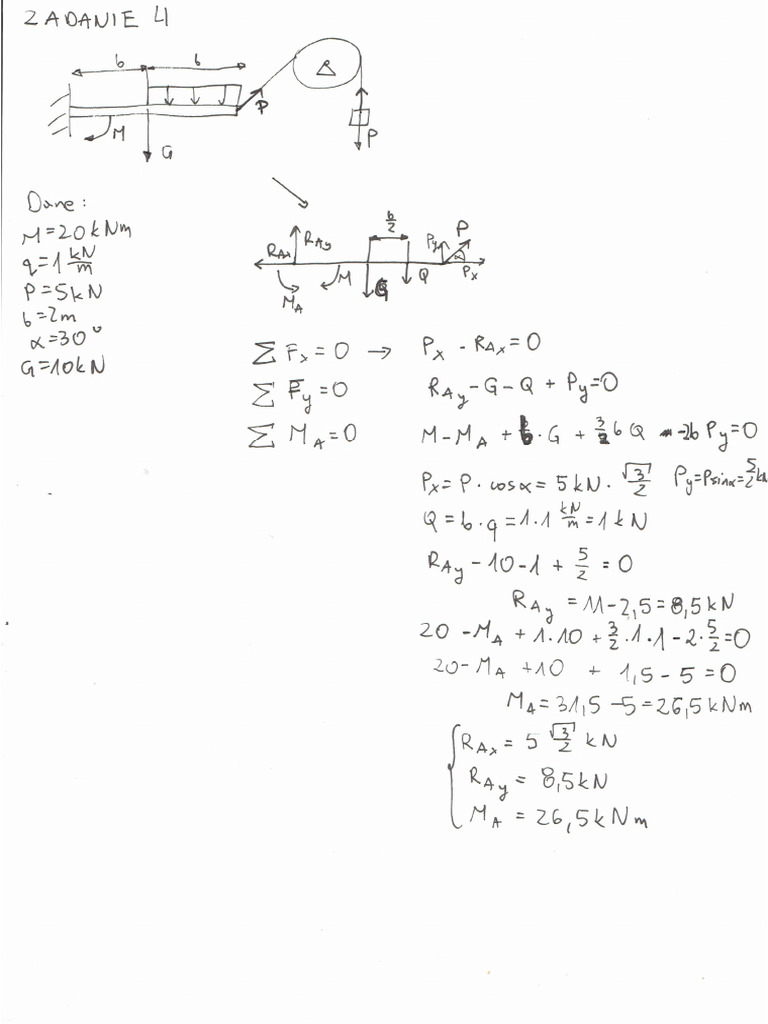 ZADANIE 4
b b
P
M
G
P
Dane:
M=20kNm
q=1 kN/m
P=5kN
b=2m
α=30°
G=10kN
b/2
RAx RAy Py P
M G Q α Px
MA
∑ Fx = 0 → Px - RAx = 0
∑ Fy = 0 RAy - G - Q + Py = 0
∑ MA = 0 M - MA + b · G + 3/2 b Q - 2b Py = 0
Px = P · cosα = 5 kN · √3/2 Py = P sinα = 5/2 kN
Q = b · q = 1 · 1 kN/m = 1 kN
RAy - 10 - 1 + 5/2 = 0
RAy = 11 - 2,5 = 8,5 kN
20 - MA + 1·10 + 3/2 · 1 · 1 - 2 · 5/2 = 0
20 - MA + 10 + 1,5 - 5 = 0
MA = 31,5 - 5 = 26,5 kNm
RAx = 5 √3/2 kN
RAy = 8,5 kN
MA = 26,5 kNm